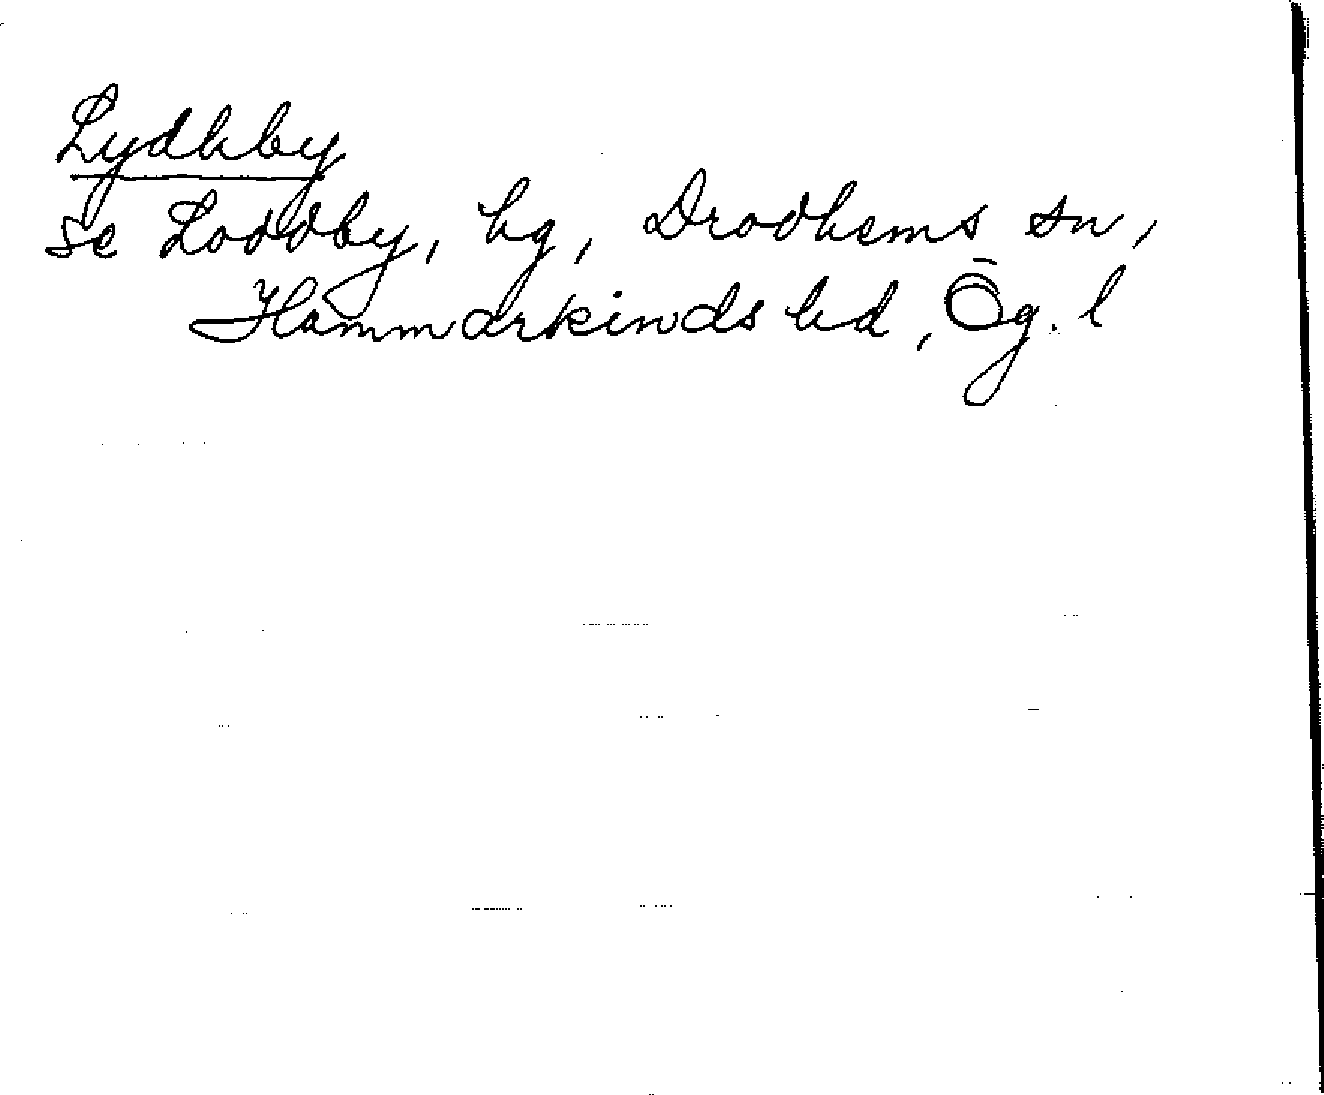 Lydhby
se Loddby, hg, Drodhems sn,
Hammarkinds hd, Ög. l